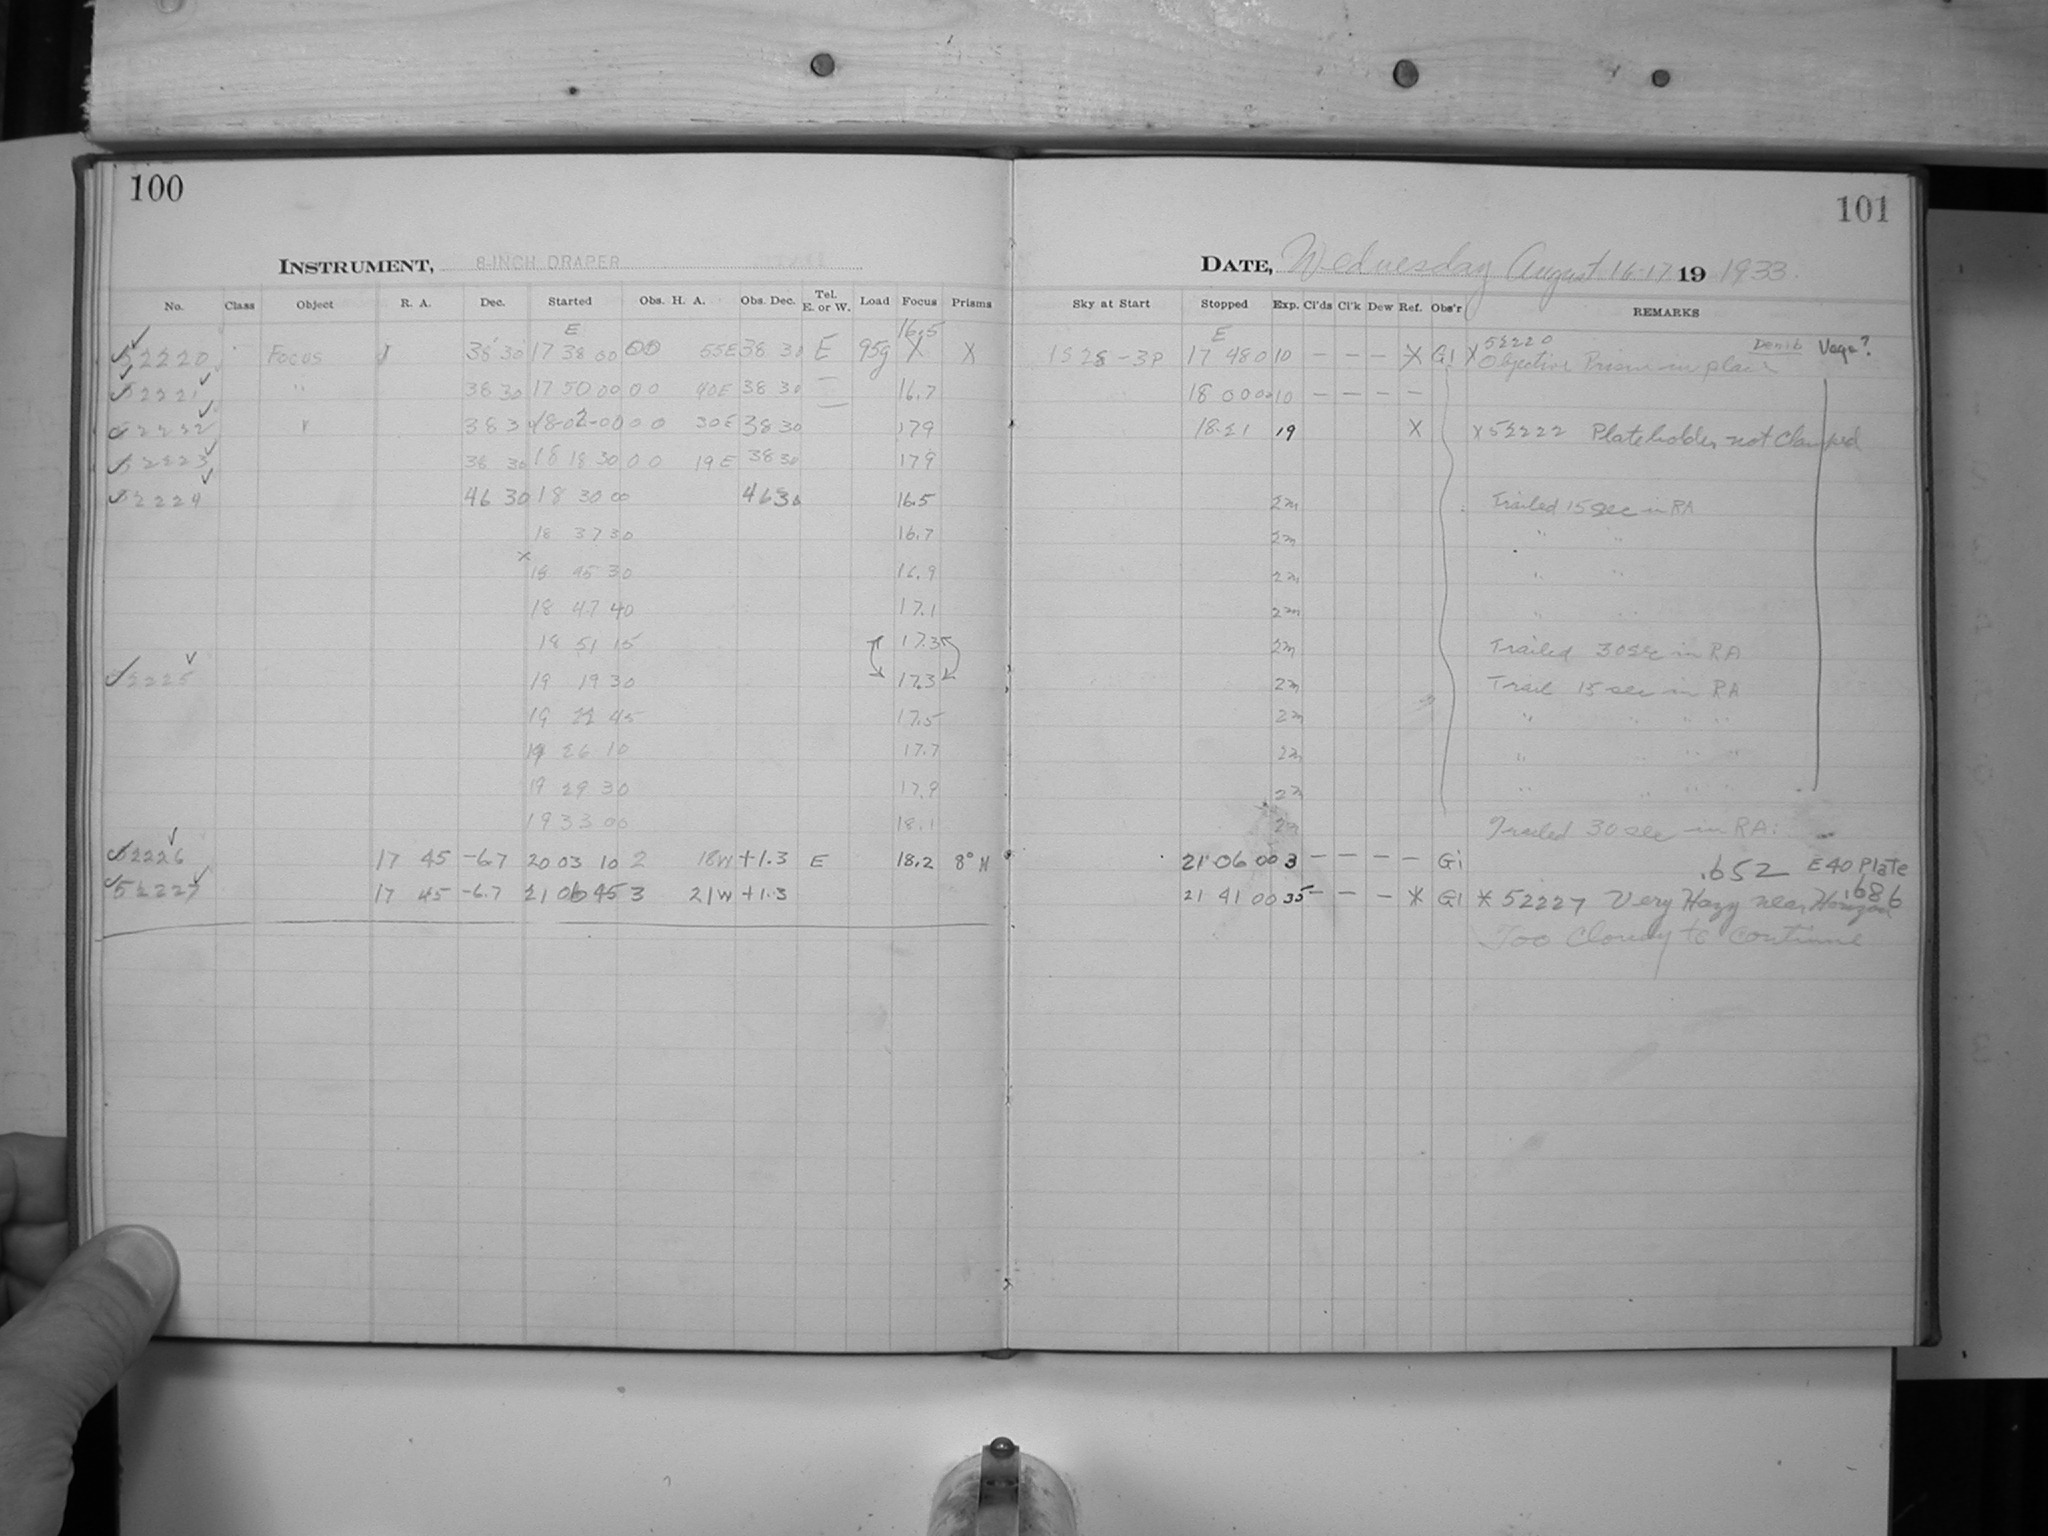 100
101
INSTRUMENT, 8-INCH DRAPER
DATE, Wednesday August 16-17 19 1933.
No. Class Object R. A. Dec. Started Obs. H. A. Obs. Dec. Tel. E. or W. Load Focus Prisms Sky at Start Stopped Exp. Cl'ds Cl'k Dew Ref. Obs'r REMARKS
E 16.5 E
52220 Focus 38 30 17 38 00 00 55E 38 30 E 95g X X 17 48 0 10 — — — X Gi X 52220 Objective Prism in place Denib Vega?
52221 " 38 30 17 50 00 00 40E 38 30 16.7 18 00 00 10 — — — —
52222 " 38 3 18-02-00 00 30E 38 30 179 18-21 19 X X 52222 Plateholder not Clamped
52223 38 30 18 18 30 00 19E 38 30 179
52224 46 30 18 30 00 46 30 16.5 2m Trailed 15 sec in RA
18 37 30 16.7 2m " "
x 18 45 30 16.9 2m " "
18 47 40 17.1 2m " "
18 51 15 17.3 2m Trailed 30 sec in RA
52225 19 19 30 17.3 2m Trail 15 sec in RA
19 22 45 17.5 2m " " " "
19 26 10 17.7 2m " " "
19 29 30 17.9 2m " " " "
19 33 00 18.1 2m Trailed 30 sec in RA.
52226 17 45 -6.7 20 03 10 2 18W +1.3 E 18.2 8° 21 06 00 3 — — — — Gi .652 E40 Plate
52227 17 45 -6.7 21 06 45 3 21W +1.3 21 41 00 35 — — — * Gi * 52227 Very Hazy near Horizon .686
Too Cloudy to continue